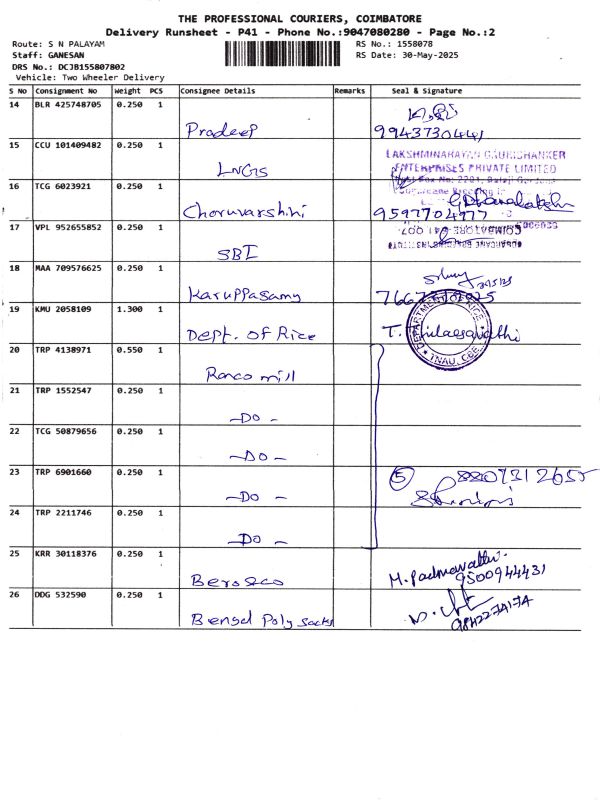 THE PROFESSIONAL COURIERS, COIMBATORE
Delivery Runsheet - P41 - Phone No.:9047080280 - Page No.:2
Route: S N PALAYAM
RS No.: 1558078
Staff: GANESAN
RS Date: 30-May-2025
DRS No.: DCJB155807802
Vehicle: Two Wheeler Delivery
S No Consignment No Weight PCS Consignee Details Remarks Seal & Signature
14 BLR 425748705 0.250 1
Pradeep 9943730441
15 CCU 101409482 0.250 1
LNGS
LAKSHMINARAYAN GOURISHANKER
ENTERPRISES PRIVATE LIMITED
16 TCG 6023921 0.250 1
Charuvarshini 9597704977
17 VPL 952655852 0.250 1
COIMBATORE-641 007
SBI
18 MAA 709576625 0.250 1
Karuppasamy
19 KMU 2058109 1.300 1
Dept. of Rice
DEPARTMENT OF RICE
TNAU, CBE
20 TRP 4138971 0.550 1
Ranco mill
21 TRP 1552547 0.250 1
-Do-
22 TCG 50879656 0.250 1
-Do-
23 TRP 6901660 0.250 1
-Do- 5 8807312655
24 TRP 2211746 0.250 1
-Do-
25 KRR 30118376 0.250 1
Berosco M. Padmavathi.
9500944431
26 DDG 532590 0.250 1
Bengal Poly sacks 9842274174